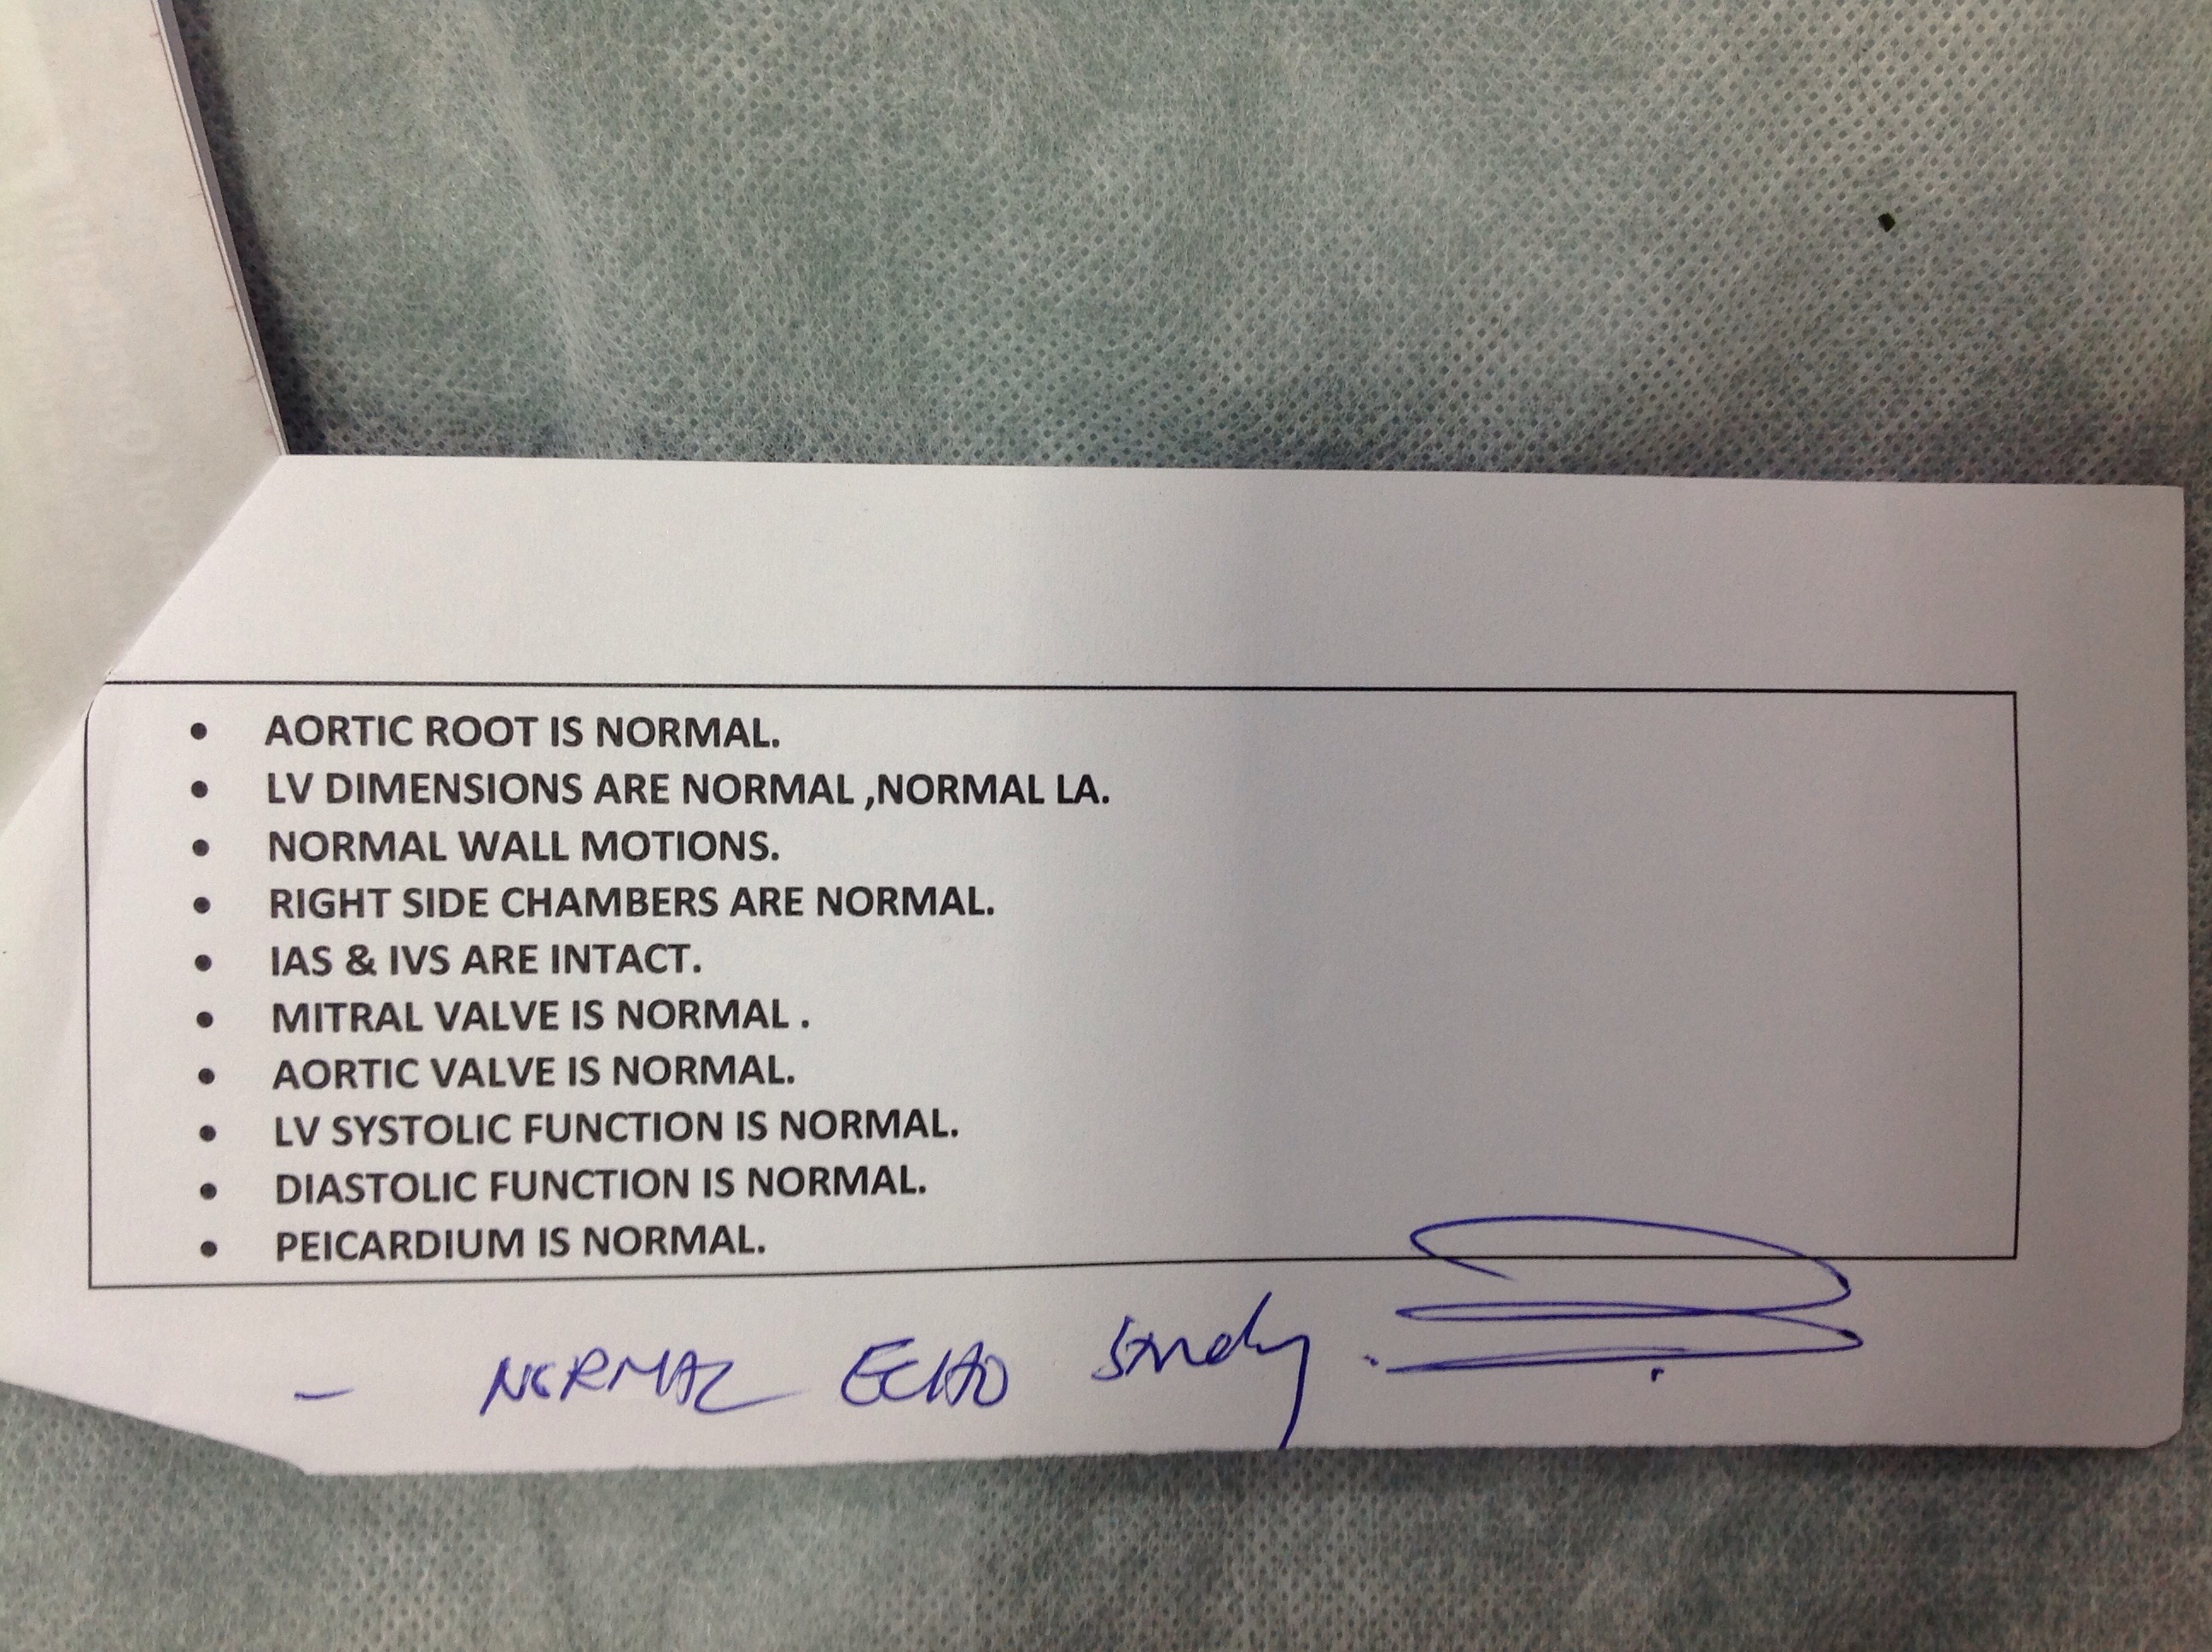 • AORTIC ROOT IS NORMAL.
• LV DIMENSIONS ARE NORMAL ,NORMAL LA.
• NORMAL WALL MOTIONS.
• RIGHT SIDE CHAMBERS ARE NORMAL.
• IAS & IVS ARE INTACT.
• MITRAL VALVE IS NORMAL .
• AORTIC VALVE IS NORMAL.
• LV SYSTOLIC FUNCTION IS NORMAL.
• DIASTOLIC FUNCTION IS NORMAL.
• PEICARDIUM IS NORMAL.
– NORMAL ECHO study.